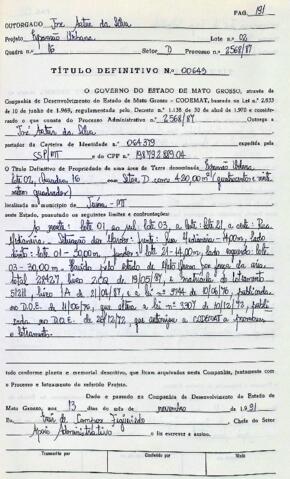 PAG. 191
OUTORGADO José Artur da Silva
Projeto Expansão Urbana Lote n.º 02
Quadra n.º 16 Setor D Processo n.º 2568/87
TÍTULO DEFINITIVO N.º 00649
O GOVERNO DO ESTADO DE MATO GROSSO, através da
Companhia de Desenvolvimento do Estado de Mato Grosso - CODEMAT, baseado na Lei n.º 2.933
de 10 de junho de 1969, regulamentada pelo Decreto n.º 1.138 de 30 de abril de 1970 e considerando
o que consta do Processo Administrativo n.º 2568/87 Outorga a
José Artur da Silva
portador da Carteira de Identidade n.º 064379 expedida pela
SSP/MT e do CPF n.º 198792889.04
O Título Definitivo de Propriedade de uma área de Terra denominada Expansão Urbana
lote 02, Quadra 16 com Setor D com 420,00 m² (quatrocentos e vinte
metros quadrados)
localizada no município de - MT
neste Estado, possuindo os seguintes limites e confrontações:
ao norte: lote 01, ao sul lote 03, a leste: lote 21, a oeste: Rua
14,00m, lado
direito: lote 01 - 30,00m, fundos: lote 21 - 14,00m, lado esquerdo: lote
03 - 30,00m. havido pelo estado de Mato Grosso por força da
de 19/05/87, e matrícula do loteamento
5/211, livro 1A de 21/04/87, e a lei nº 3744 de 10/06/76, publicada
no D.O.E. de 11/06/76, que altera a lei nº 3307 de 10/12/72, publi
cada no D.O.E. de 26/12/72, que autorizou a CODEMAT a promover
o loteamento.
tudo conforme planta e memorial descritivo, que ficam arquivados nesta Companhia, juntamente com
o Processo e loteamento do referido Projeto.
Dado e passado na Companhia de Desenvolvimento do Estado de
Mato Grosso, aos 13 dias do mês de novembro de 1991
Eu, de Campos Figueiredo Chefe do Setor
Apoio Administrativo o fiz escrever e assino.
Transcrito por Conferido por Visto